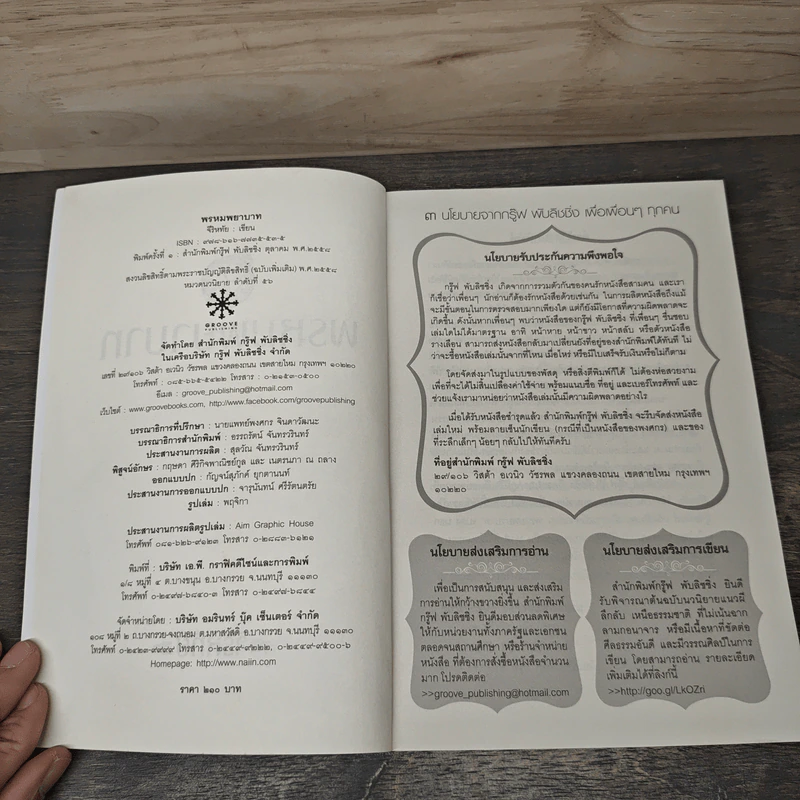 พรหมพยาบาท
จิรหทัย : เขียน
ISBN : ๙๗๘-๖๑๖-๗๗๓๕-๕๓-๕
พิมพ์ครั้งที่ ๑ : สำนักพิมพ์กรู๊ฟ พับลิชชิ่ง ตุลาคม พ.ศ.๒๕๕๘
สงวนลิขสิทธิ์ตามพระราชบัญญัติลิขสิทธิ์ (ฉบับเพิ่มเติม) พ.ศ.๒๕๕๘
หมวดนวนิยาย ลำดับที่ ๕๖
GROOVE
PUBLISHING
จัดทำโดย สำนักพิมพ์ กรู๊ฟ พับลิชชิ่ง
ในเครือบริษัท กรู๊ฟ พับลิชชิ่ง จำกัด
เลขที่ ๒๙/๑๐๖ วิสต้า อเวนิว วัชรพล แขวงคลองถนน เขตสายไหม กรุงเทพฯ ๑๐๒๒๐
โทรศัพท์ : ๐๘๕-๖๖๕-๕๔๒๒ โทรสาร : ๐-๒๑๕๓-๐๕๐๐
อีเมล : groove_publishing@hotmail.com
เว็บไซต์ : www.groovebooks.com, http://www.facebook.com/groovepublishing
บรรณาธิการที่ปรึกษา : นายแพทย์พงศกร จินดาวัฒนะ
บรรณาธิการสำนักพิมพ์ : อรรถรัตน์ จันทรวรินทร์
ประสานงานการผลิต : สุลวัณ จันทรวรินทร์
พิสูจน์อักษร : กฤษดา ศิริกิจพาณิชย์กูล และ เนตรนภา ณ ถลาง
ออกแบบปก : กัญจน์สุภัคค์ ยุกตานนท์
ประสานงานการออกแบบปก : จารุนันทน์ ศรีรัตนตรัย
รูปเล่ม : พฤจิกา
ประสานงานการผลิตรูปเล่ม : Aim Graphic House
โทรศัพท์ ๐๘๑-๖๒๖-๙๑๒๓ โทรสาร ๐-๒๘๘๓-๖๑๒๑
พิมพ์ที่ : บริษัท เอ.พี. กราฟิคดีไซน์และการพิมพ์
๑/๘ หมู่ที่ ๔ ต.บางขนุน อ.บางกรวย จ.นนทบุรี ๑๑๑๓๐
โทรศัพท์ ๐-๒๔๙๗-๖๘๔๐-๓ โทรสาร ๐-๒๔๙๗-๖๘๔๔
จัดจำหน่ายโดย : บริษัท อมรินทร์ บุ๊ค เซ็นเตอร์ จำกัด
๑๐๘ หมู่ที่ ๒ ถ.บางกรวย-จงถนอม ต.มหาสวัสดิ์ อ.บางกรวย จ.นนทบุรี ๑๑๑๓๐
โทรศัพท์ ๐-๒๔๒๓-๙๙๙๙ โทรสาร ๐-๒๔๔๙-๙๒๒๒, ๐-๒๔๔๙-๙๕๐๐-๖
Homepage: http://www.naiin.com
ราคา ๒๑๐ บาท
๓ นโยบายจากกรู๊ฟ พับลิชชิ่ง เพื่อเพื่อนๆ ทุกคน
นโยบายรับประกันความพึงพอใจ
กรู๊ฟ พับลิชชิ่ง เกิดจากการรวมตัวกันของคนรักหนังสือสามคน และเรา
ก็เชื่อว่าเพื่อนๆ นักอ่านก็ต้องรักหนังสือด้วยเช่นกัน ในการผลิตหนังสือถึงแม้
จะมีขั้นตอนในการตรวจสอบมากเพียงใด แต่ก็ยังมีโอกาสที่ความผิดพลาดจะ
เกิดขึ้น ดังนั้นหากเพื่อนๆ พบว่าหนังสือของกรู๊ฟ พับลิชชิ่ง ที่เพื่อนๆ ชื่นชอบ
เล่มใดไม่ได้มาตรฐาน อาทิ หน้าหาย หน้าขาว หน้าสลับ หรือตัวหนังสือ
รางเลือน สามารถส่งหนังสือกลับมาเปลี่ยนยังที่อยู่ของสำนักพิมพ์ได้ทันที ไม่
ว่าจะซื้อหนังสือเล่มนั้นจากที่ไหน เมื่อไหร่ หรือมีใบเสร็จรับเงินหรือไม่ก็ตาม
โดยจัดส่งมาในรูปแบบของพัสดุ หรือสิ่งตีพิมพ์ก็ได้ ไม่ต้องห่อสวยงาม
เพื่อที่จะได้ไม่สิ้นเปลืองค่าใช้จ่าย พร้อมแนบชื่อ ที่อยู่ และเบอร์โทรศัพท์ และ
ช่วยแจ้งเรามาหน่อยว่าหนังสือเล่มนั้นมีความผิดพลาดอย่างไร
เมื่อได้รับหนังสือชำรุดแล้ว สำนักพิมพ์กรู๊ฟ พับลิชชิ่ง จะรีบจัดส่งหนังสือ
เล่มใหม่ พร้อมลายเซ็นนักเขียน (กรณีที่เป็นหนังสือของพงศกร) และของ
ที่ระลึกเล็กๆ น้อยๆ กลับไปให้ทันทีครับ
ที่อยู่สำนักพิมพ์ กรู๊ฟ พับลิชชิ่ง
๒๙/๑๐๖ วิสต้า อเวนิว วัชรพล แขวงคลองถนน เขตสายไหม กรุงเทพฯ
๑๐๒๒๐
นโยบายส่งเสริมการอ่าน
เพื่อเป็นการสนับสนุน และส่งเสริม
การอ่านให้กว้างขวางยิ่งขึ้น สำนักพิมพ์
กรู๊ฟ พับลิชชิ่ง ยินดีมอบส่วนลดพิเศษ
ให้กับหน่วยงานทั้งภาครัฐและเอกชน
ตลอดจนสถานศึกษา หรือร้านจำหน่าย
หนังสือ ที่ต้องการสั่งซื้อหนังสือจำนวน
มาก โปรดติดต่อ
>>groove_publishing@hotmail.com
นโยบายส่งเสริมการเขียน
สำนักพิมพ์กรู๊ฟ พับลิชชิ่ง ยินดี
รับพิจารณาต้นฉบับนวนิยายแนวลี้
ลึกลับ เหนือธรรมชาติ ที่ไม่เน้นฉาก
ลามกอนาจาร หรือมีเนื้อหาที่ขัดต่อ
ศีลธรรมอันดี และมีวรรณศิลป์ในการ
เขียน โดยสามารถอ่าน รายละเอียด
เพิ่มเติมได้ที่ลิงก์นี้
>>http://goo.gl/LkOZri